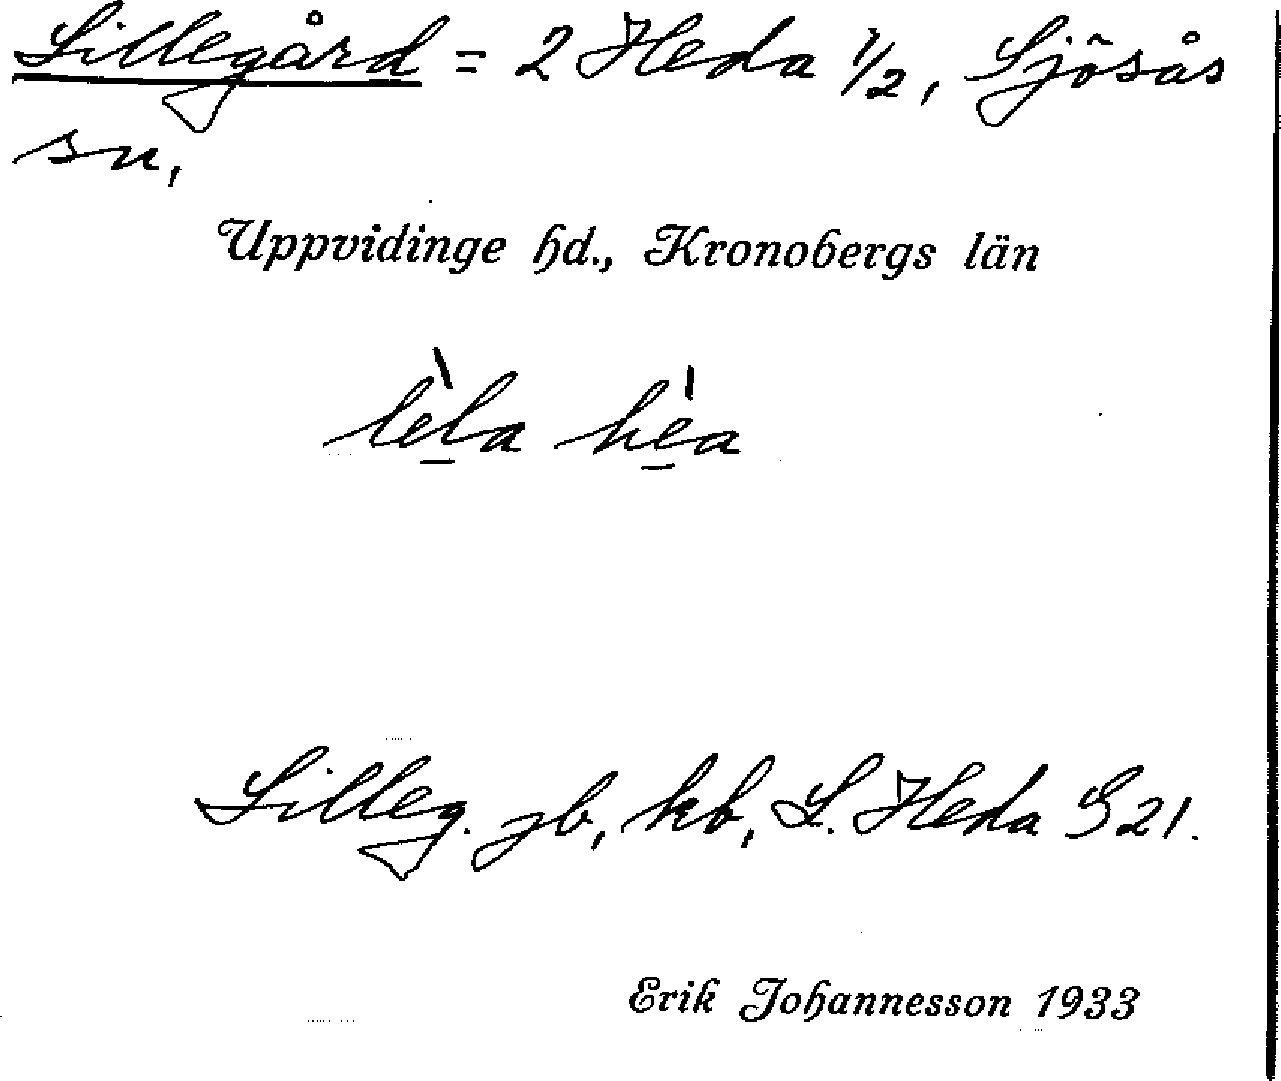 Lillegård = 2 Heda 1/2, Sjösås
sn,
Uppvidinge hd., Kronobergs län
lèla hèa
Lilleg. jb, kb, L. Heda G 21.
Erik Johannesson 1933